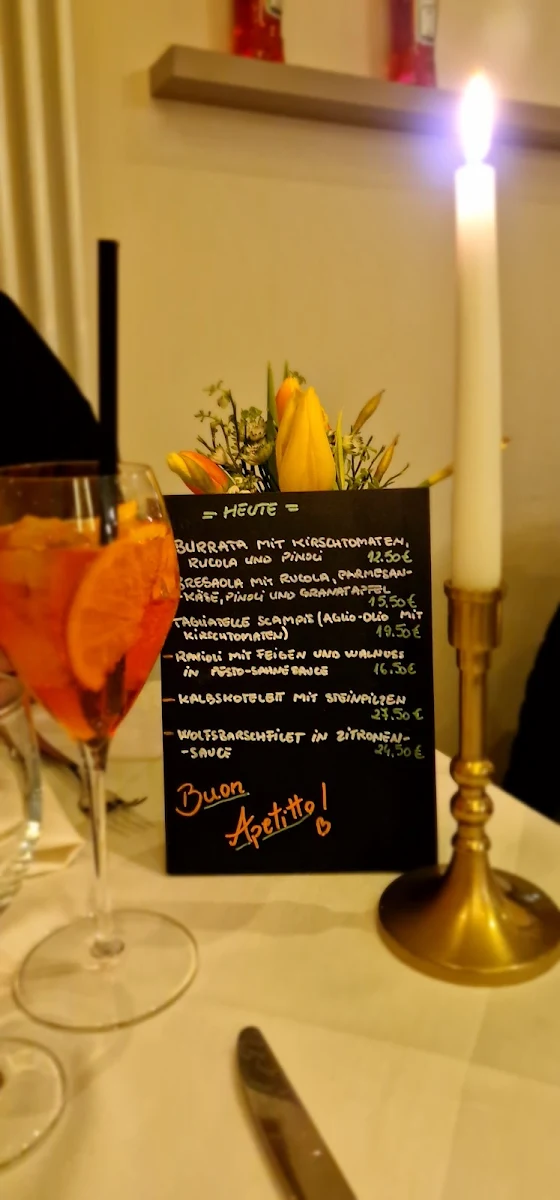 = HEUTE =
BURRATA MIT KIRSCHTOMATEN,
RUCOLA UND PINOLI 12.50€
BRESAOLA MIT RUCOLA, PARMESAN-
KÄSE, PINOLI UND GRANATAPFEL
15,50€
TAGLIATELLE SCAMPIS (AGLIO-OLIO MIT
KIRSCHTOMATEN) 19.50€
- RAVIOLI MIT FEIGEN UND WALNUSS
IN PESTO-SAHNESAUCE 16.50€
- KALBSKOTELETT MIT STEINPILZEN
27,50€
- WOLFSBARSCHFILET IN ZITRONEN-
-SAUCE 24,50€
Buon
Apetitto!